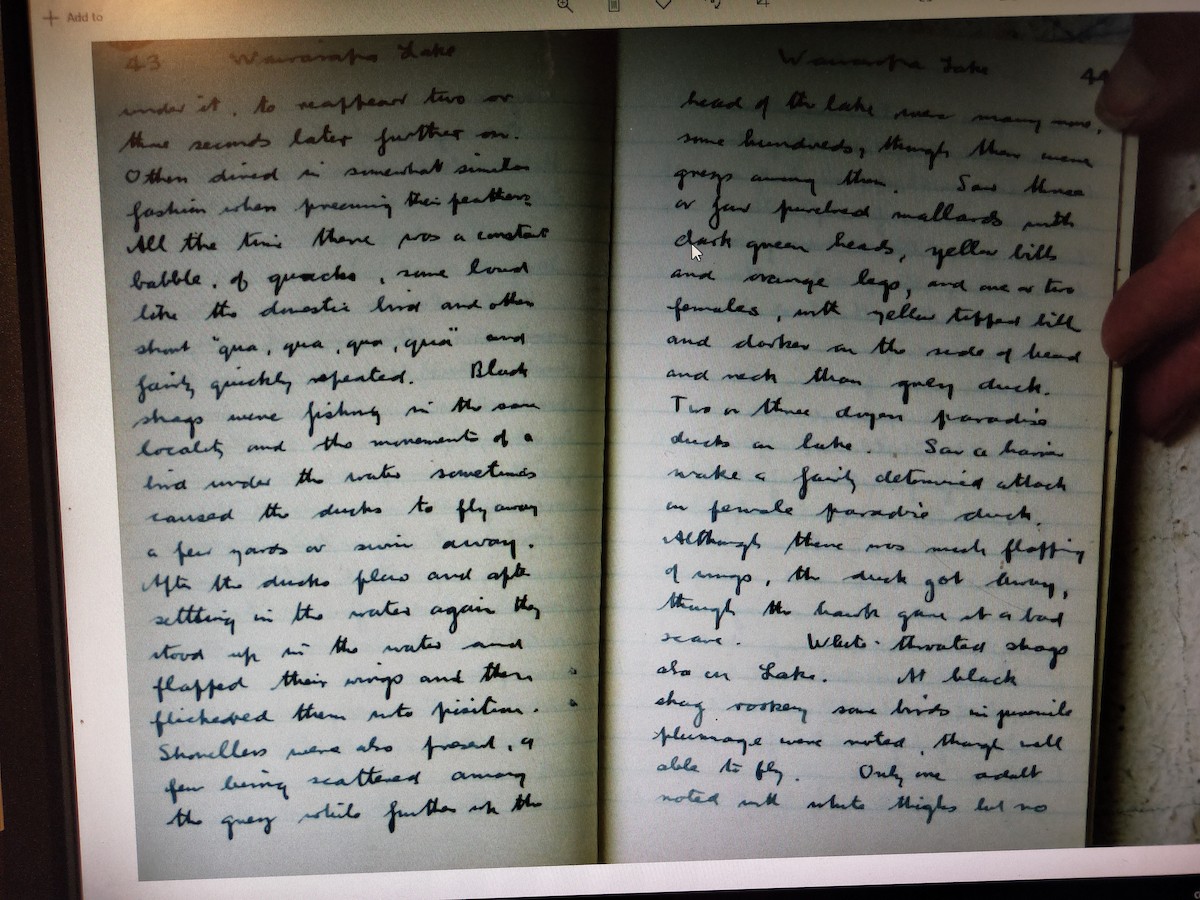 Add to
43 Wairarapa Lake
under it, to reappear two or
three seconds later further on.
Others dived in somewhat similar
fashion when preening their feathers
All the time there was a constant
babble, of quacks, some loud
like the domestic bird and others
short "qua, qua, qua, qua" and
fairly quickly repeated. Black
shags were fishing in the same
locality and the movements of a
bird under the water sometimes
caused the ducks to fly away
a few yards or swim away.
After the ducks flew and after
settling in the water again they
stood up in the water and
flapped their wings and then
flickered them into position.
Shovellers were also present, a
few being scattered among
the grey while further up the
Wairarapa Lake 44
head of the lake were many more,
some hundreds, though there were
greys among them. Saw three
or four purebred mallards with
dark green heads, yellow bills
and orange legs, and one or two
females, with yellow tipped bill
and darker on the side of head
and neck than grey duck.
Two or three dozen paradise
ducks on lake. Saw a harrier
make a fairly determined attack
on female paradise duck.
Although there was much flapping
of wings, the duck got away,
though the hawk gave it a bad
scare. White-throated shags
also on Lake. At black
shag rookery some birds in juvenile
plumage were noted, though well
able to fly. Only one adult
noted with white thighs but no